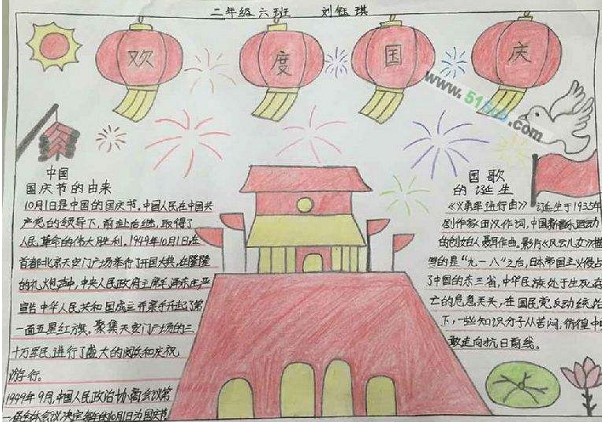 二年级六班 刘钰琪
欢度国庆
www.51
.com
中国
国庆节的由来
10月1日是中国的国庆节,中国人民在中国共
产党的领导下,前赴后继,取得了
人民革命的伟大胜利,1949年10月1日在
首都北京天安门广场举行了开国大典,在隆隆
的礼炮声中,中央人民政府主席毛泽东庄严
宣告中华人民共和国成立并亲手升起了第
一面五星红旗,聚集天安门广场的三
十万军民,进行了盛大的阅兵和庆祝
游行。
1949年9月,中国人民政治协商会议第
一届全体会议决定每年10月1日为国庆节
国歌
的诞生
《义勇军进行曲》诞生于1935年
创作者田汉作词,中国新音乐运动
的创始人聂耳作曲,影片《风云儿女》描
的是"九一八"之后,日本帝国主义侵占
了中国的东三省,中华民族处于生死存
亡的危急关头,在国民党反动统治
下,一些知识分子从苦闷,彷徨中
敢走向抗日前线。